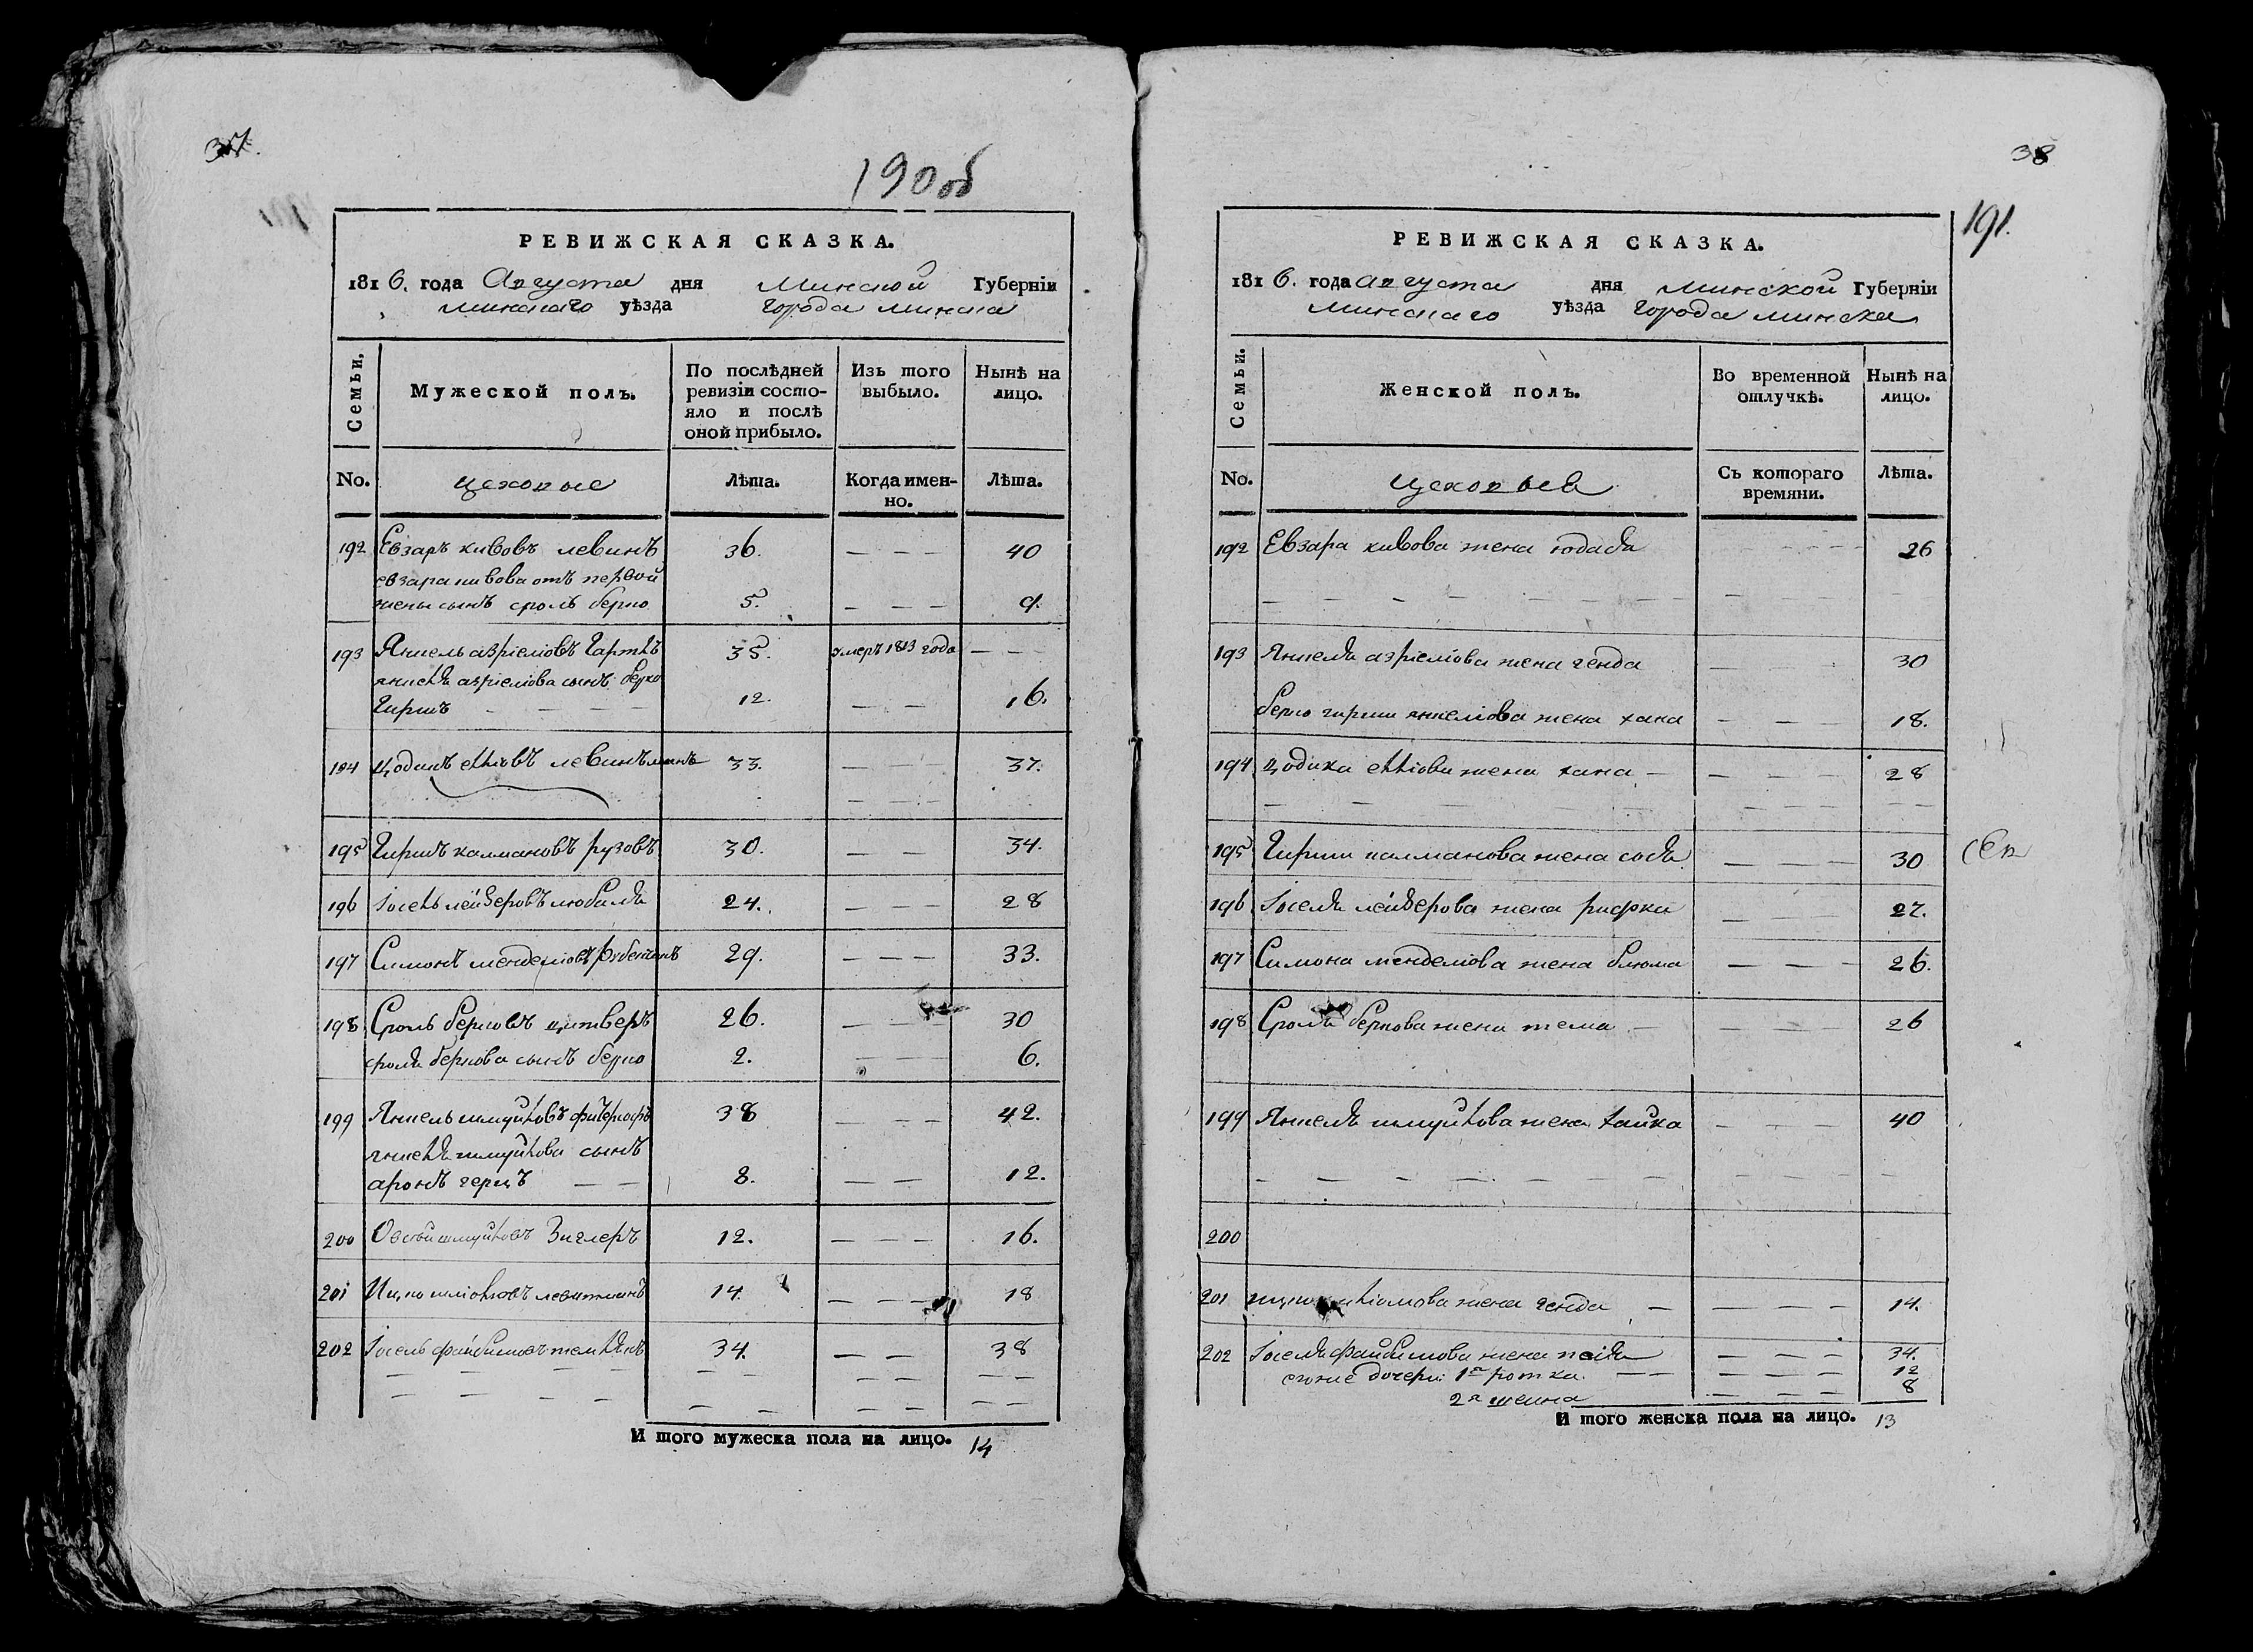 37.
190об
РЕВИЖСКАЯ СКАЗКА.
1816. года Августа дня Минской Губерніи
Минскаго уѣзда города Минска
Семьи.
Мужеской полъ.
По послѣдней ревизіи состояло и послѣ оной прибыло.
Изъ того выбыло.
Нынѣ на лицо.
No. цеховые Лѣта. Когда именно. Лѣта.
192 Евзаръ кивовъ левинъ 36. — — — 40
евзара кивова отъ первой
жены сынъ сроль берко 5. — — — 9.
193 Янкель азріеліовъ 35. умеръ 1813 года — — —
янкеля азріеліова сынъ берко
гиршъ — — — — 12. — — 16.
194 цодикъ левинъ 33. — — — 37.
— — —
195 Гиршъ калмановъ рузовъ 30. — — 34.
196 Іосель лейзеровъ 24. — — — 28
197 Симонъ менделіовъ 29. — — — 33.
198 Сроль берковъ 26. — — — 30
сроля беркова сынъ берко 2. — — — 6.
199 Янкель шмуйловъ 38 — — — 42.
янкеля шмуйлова сынъ
аронъ герцъ — — 8. — — 12.
200 шмуйловъ Зиглеръ 12. — — — 16.
201 Ицко левитманъ 14. — — — 18
202 Іосель файбишовъ 34. — — 38
— — — — — — — — — —
— — — — — — — — — —
И того мужеска пола на лицо. 14
38
191.
РЕВИЖСКАЯ СКАЗКА.
1816. года августа дня Минской Губерніи
Минскаго уѣзда города Минска
Семьи.
Женской полъ.
Во временной отлучкѣ.
Нынѣ на лицо.
No. цеховые Съ котораго времяни. Лѣта.
192 Евзара кивова жена юдася — — — 26
193 Янкеля азріеліова жена генда — — — 30
берко гирши янкеліова жена хана — — — 18.
194 цодика жена хана — — — — 28
195 Гирши калманова жена сося — — — 30
196 Іоселя лейзерова жена рифка — — 27.
197 Симона менделіова жена блюма — — — 26.
198 Сроля беркова жена тема — — — — 26
199 Янкеля шмуйлова жена хайка — — — 40
200
201 жена генда — — — — 14.
202 Іоселя файбишова жена — — — 34.
дочери: 1я — — — — — 12
2я — — — 8
И того женска пола на лицо. 13